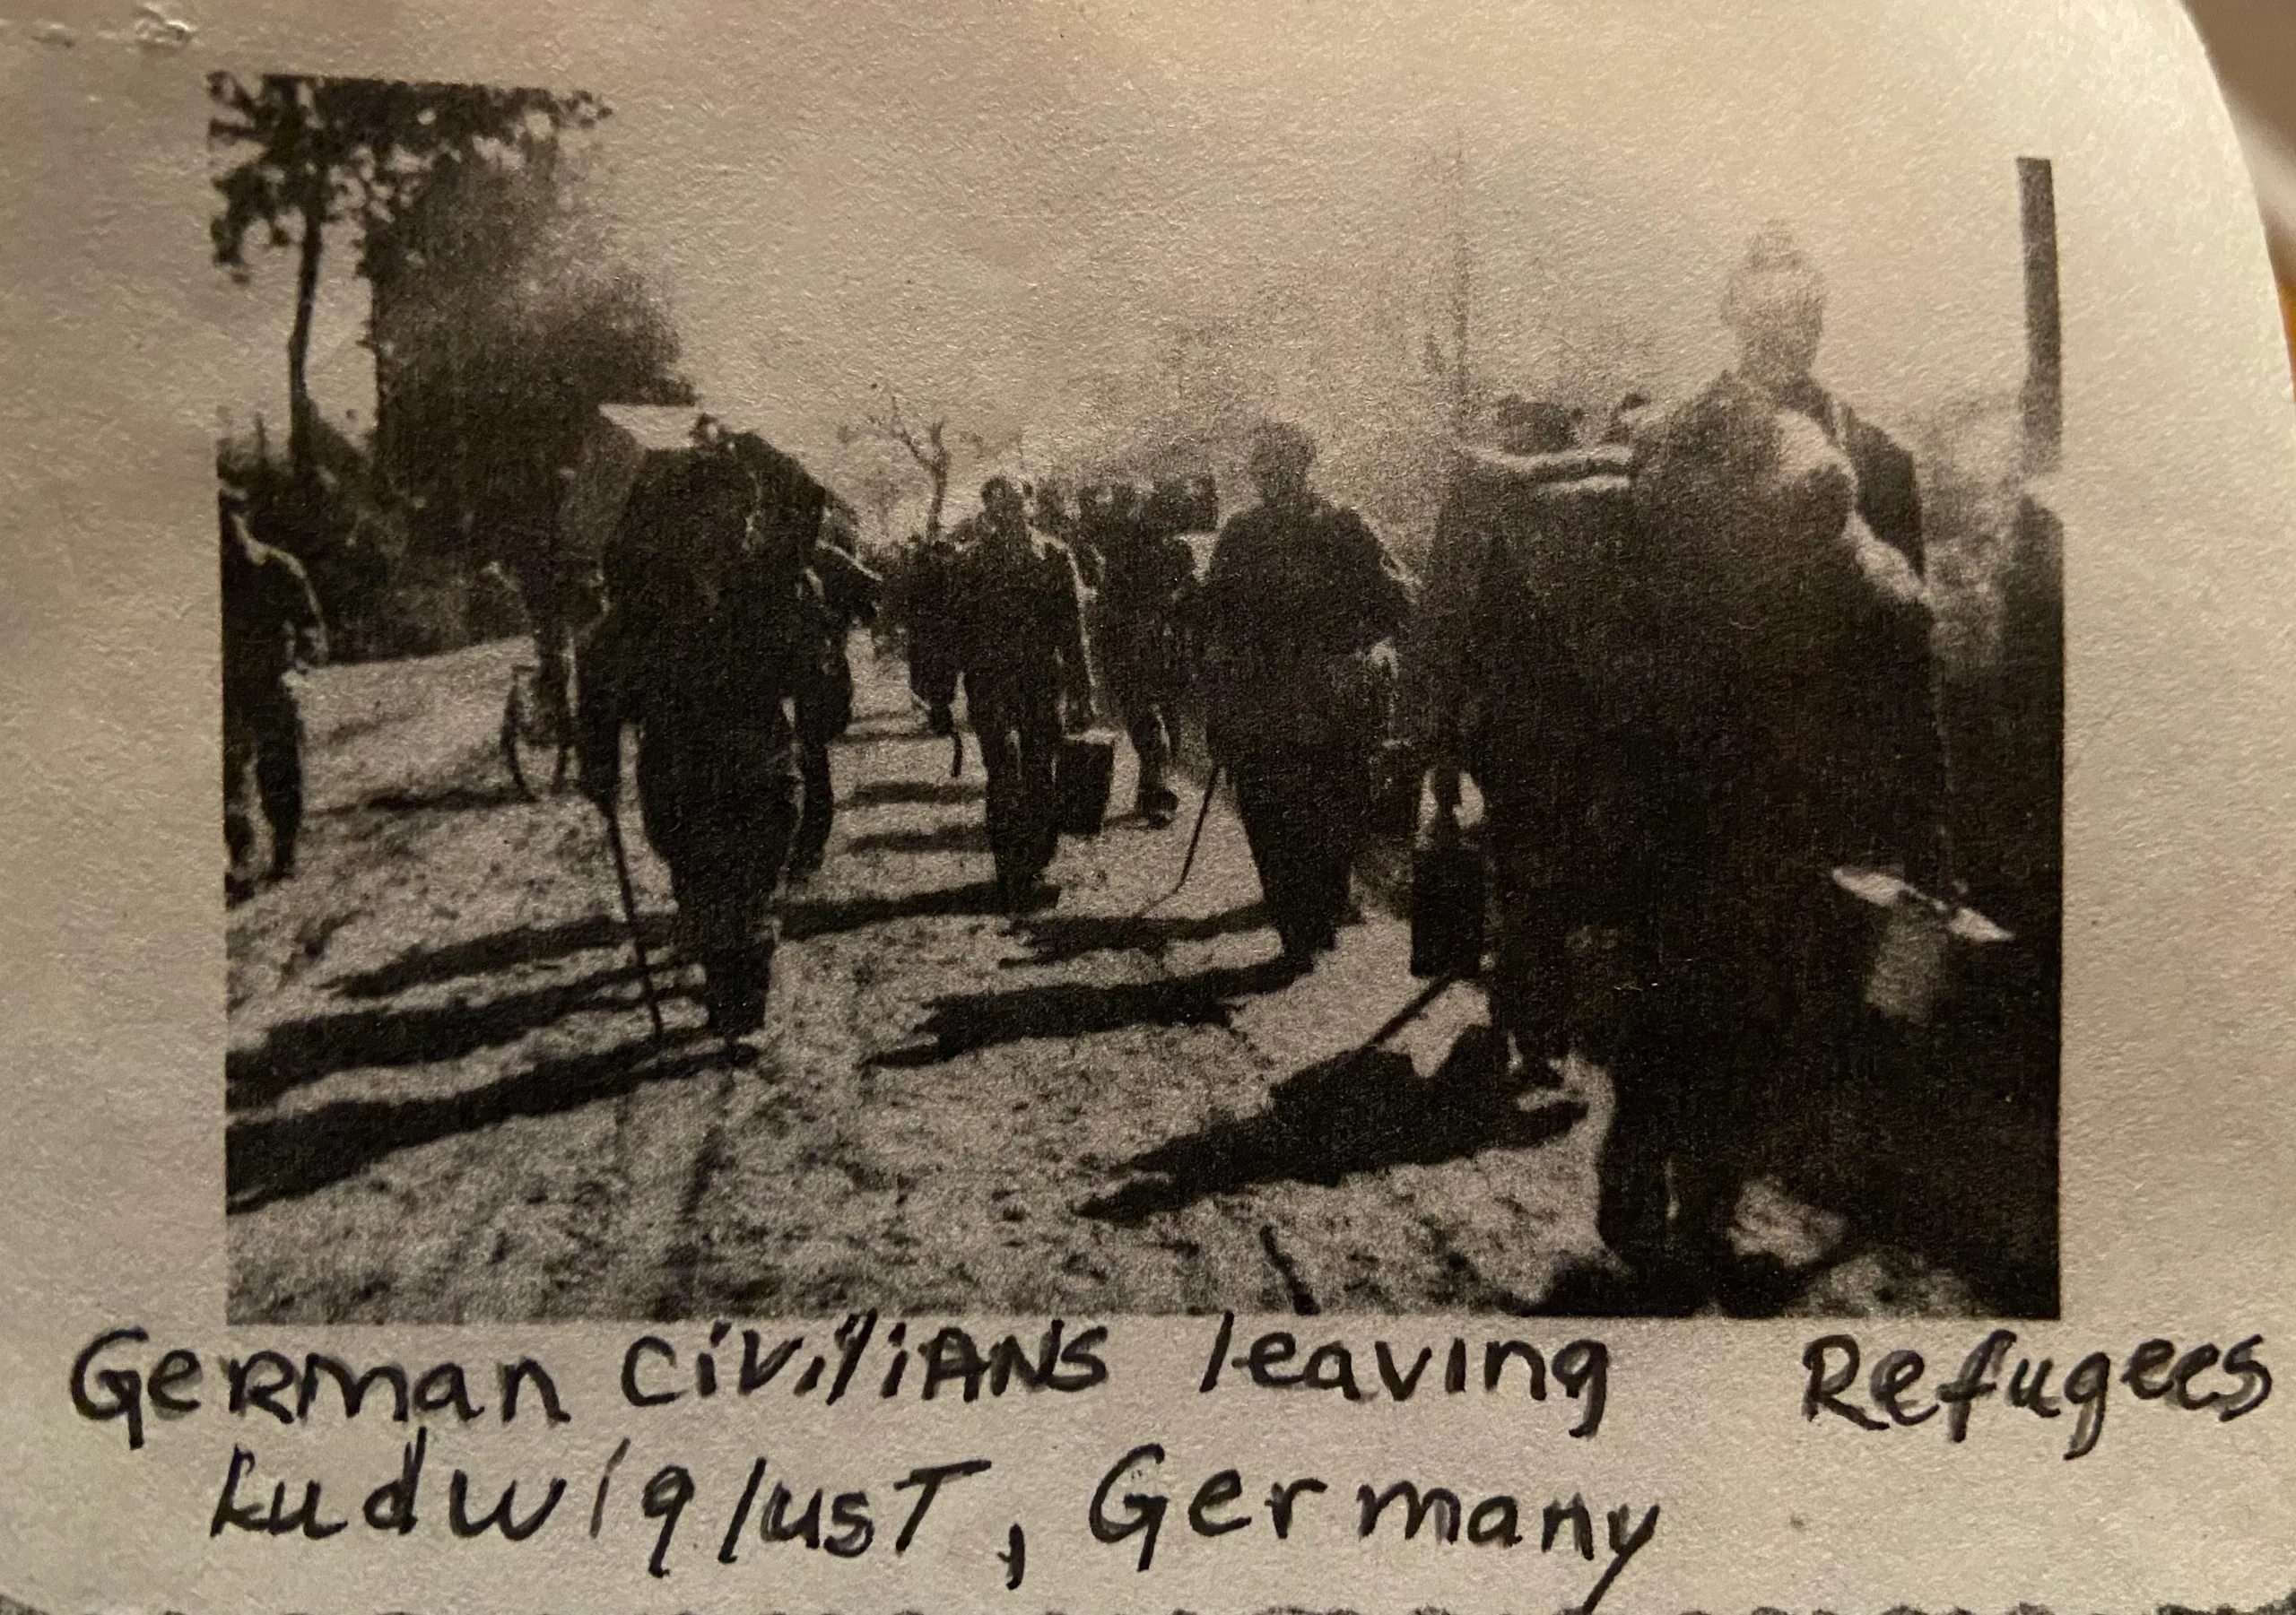 German civilians leaving Refugees
Ludwiglust, Germany